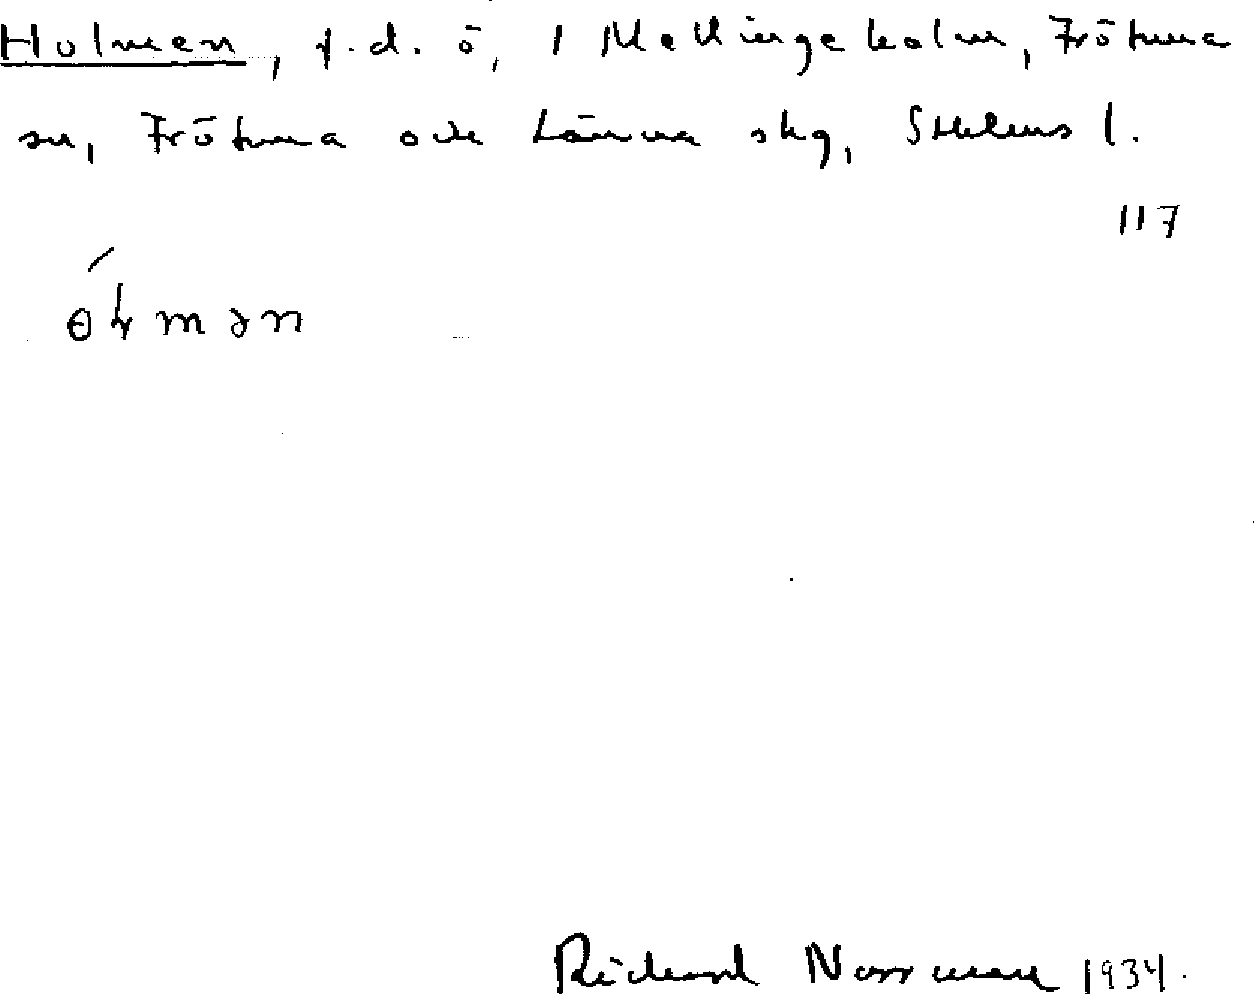 Holmen, f.d. ö, 1 Mellingeholm, Frötuna
sn, Frötuna och Länna skg, Sthlms l.
117
Richard Norrman 1934.